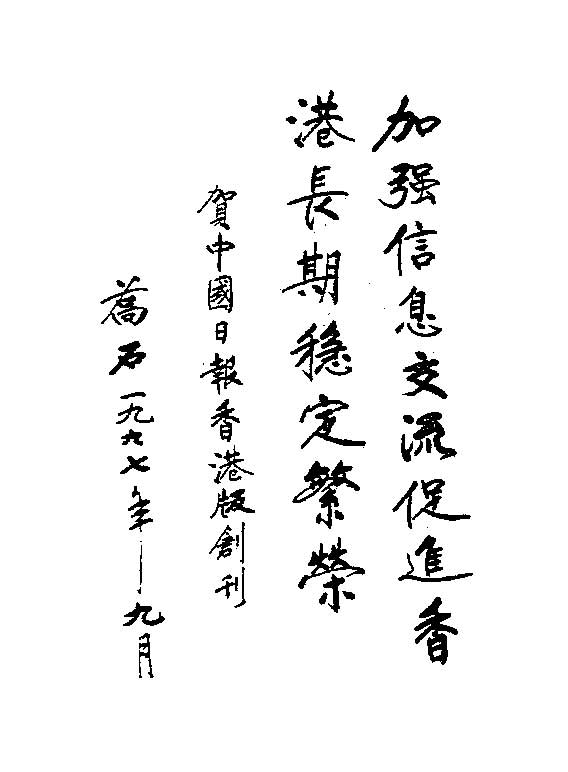 加强信息交流促進香
港長期穩定繁榮
賀中國日報香港版創刊
喬石一九九七年九月